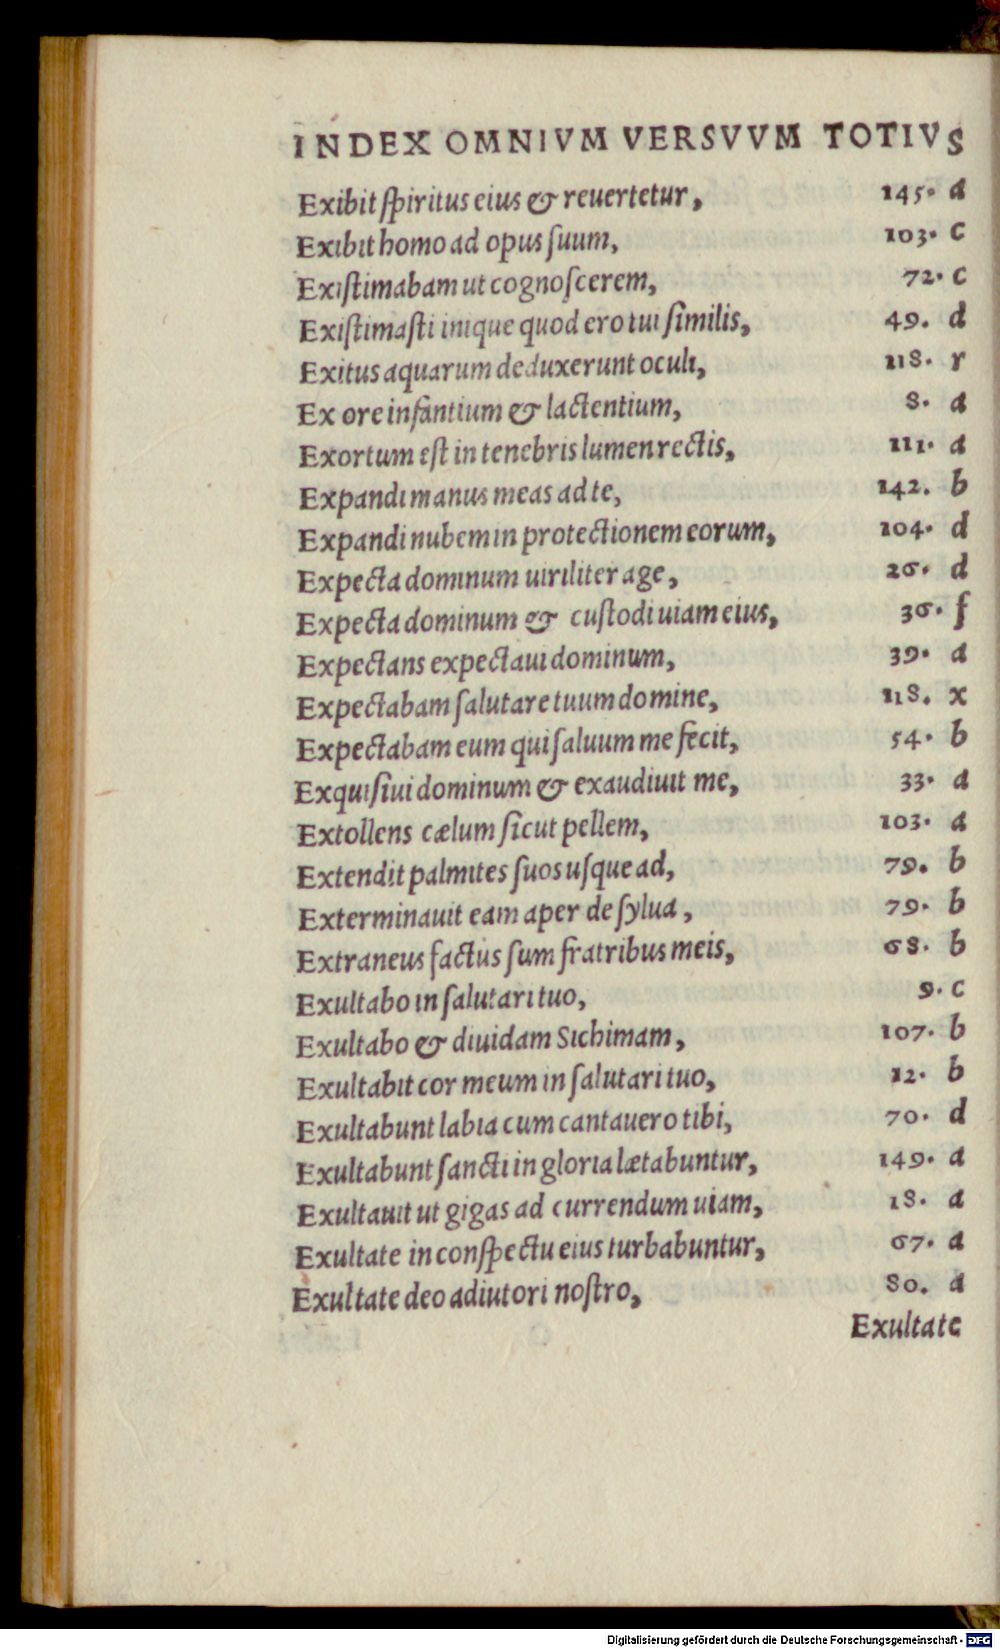 INDEX OMNIVM VERSVVM TOTIVS
Exibit spiritus eius & reuertetur, 145. a
Exibit homo ad opus suum, 103. c
Existimabam ut cognoscerem, 72. c
Existimasti inique quod ero tui similis, 49. d
Exitus aquarum deduxerunt oculi, 118. r
Ex ore infantium & lactentium, 8. a
Exortum est in tenebris lumen rectis, 111. a
Expandi manus meas ad te, 142. b
Expandi nubem in protectionem eorum, 104. d
Expecta dominum uiriliter age, 26. d
Expecta dominum & custodi uiam eius, 36. f
Expectans expectaui dominum, 39. a
Expectabam salutare tuum domine, 118. x
Expectabam eum qui saluum me fecit, 54. b
Exquisiui dominum & exaudiuit me, 33. a
Extollens cælum sicut pellem, 103. a
Extendit palmites suos usque ad, 79. b
Exterminauit eam aper de sylua, 79. b
Extraneus factus sum fratribus meis, 68. b
Exultabo in salutari tuo, 9. c
Exultabo & diuidam Sichimam, 107. b
Exultabit cor meum in salutari tuo, 12. b
Exultabunt labia cum cantauero tibi, 70. d
Exultabunt sancti in gloria lætabuntur, 149. a
Exultauit ut gigas ad currendum uiam, 18. a
Exultate in conspectu eius turbabuntur, 67. a
Exultate deo adiutori nostro, 80. a
Exultate
Digitalisierung gefördert durch die Deutsche Forschungsgemeinschaft - DFG